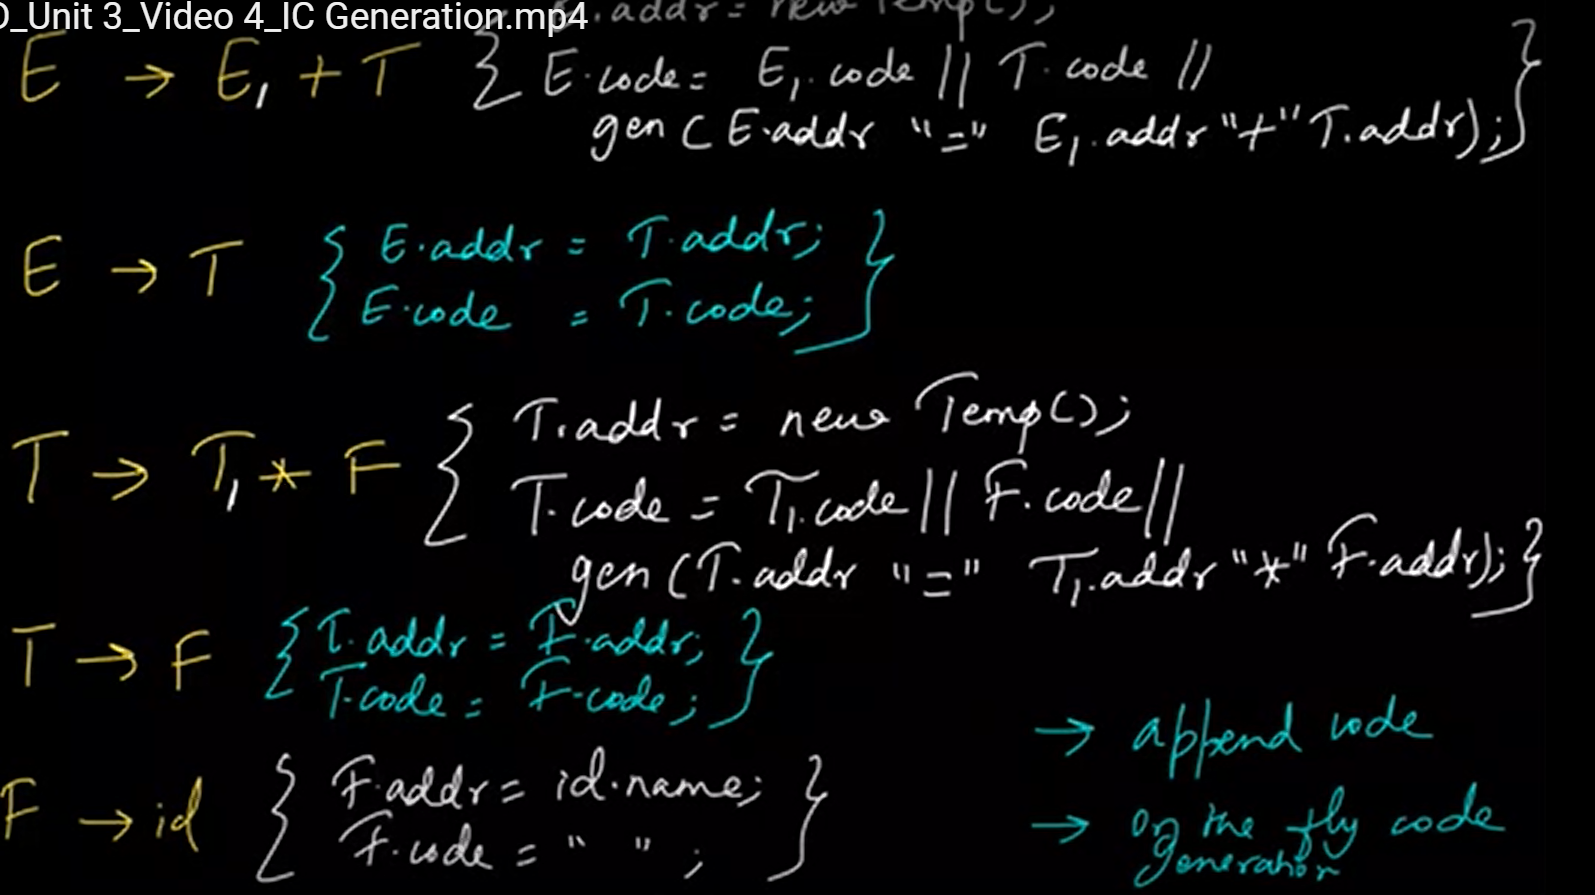 D_Unit 3_Video 4_IC Generation.mp4
E.addr = new Temp();
E → E₁ + T { E.code = E₁.code || T.code ||
gen ( E.addr "=" E₁.addr "+" T.addr); }
E → T { E.addr = T.addr;
E.code = T.code; }
T → T₁ * F { T.addr = new Temp();
T.code = T₁.code || F.code ||
gen (T.addr "=" T₁.addr "*" F.addr); }
T → F { T.addr = F.addr;
T.code = F.code; }
→ append code
F → id { F.addr = id.name;
F.code = " " ; }
→ on the fly code
generation